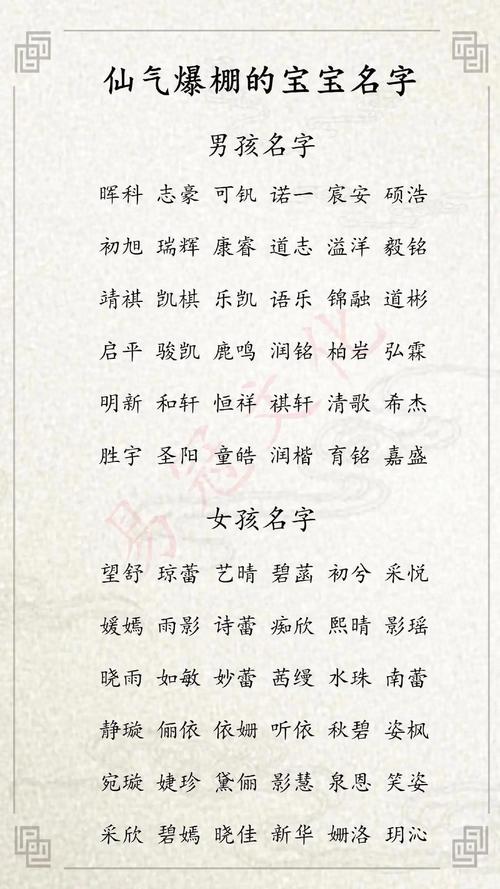 仙气爆棚的宝宝名字
男孩名字
晖科 志豪 可钒 诺一 宸安 硕浩
初旭 瑞辉 康睿 道志 溢洋 毅铭
靖祺 凯棋 乐凯 语乐 锦融 道彬
启平 骏凯 鹿鸣 润铭 柏岩 弘霖
明新 和轩 恒祥 祺轩 清歌 希杰
胜宇 圣阳 童皓 润楷 育铭 嘉盛
女孩名字
望舒 琼蕾 艺晴 碧菡 初兮 采悦
媛嫣 雨影 诗蕾 痴欣 熙晴 影瑶
晓雨 如敏 妙蕾 茜缦 水珠 南蕾
静璇 俪依 依姗 听依 秋碧 姿枫
宛璇 婕珍 黛俪 影慧 泉恩 笑姿
采欣 碧嫣 晓佳 新华 姗洛 玥沁
易冠文化